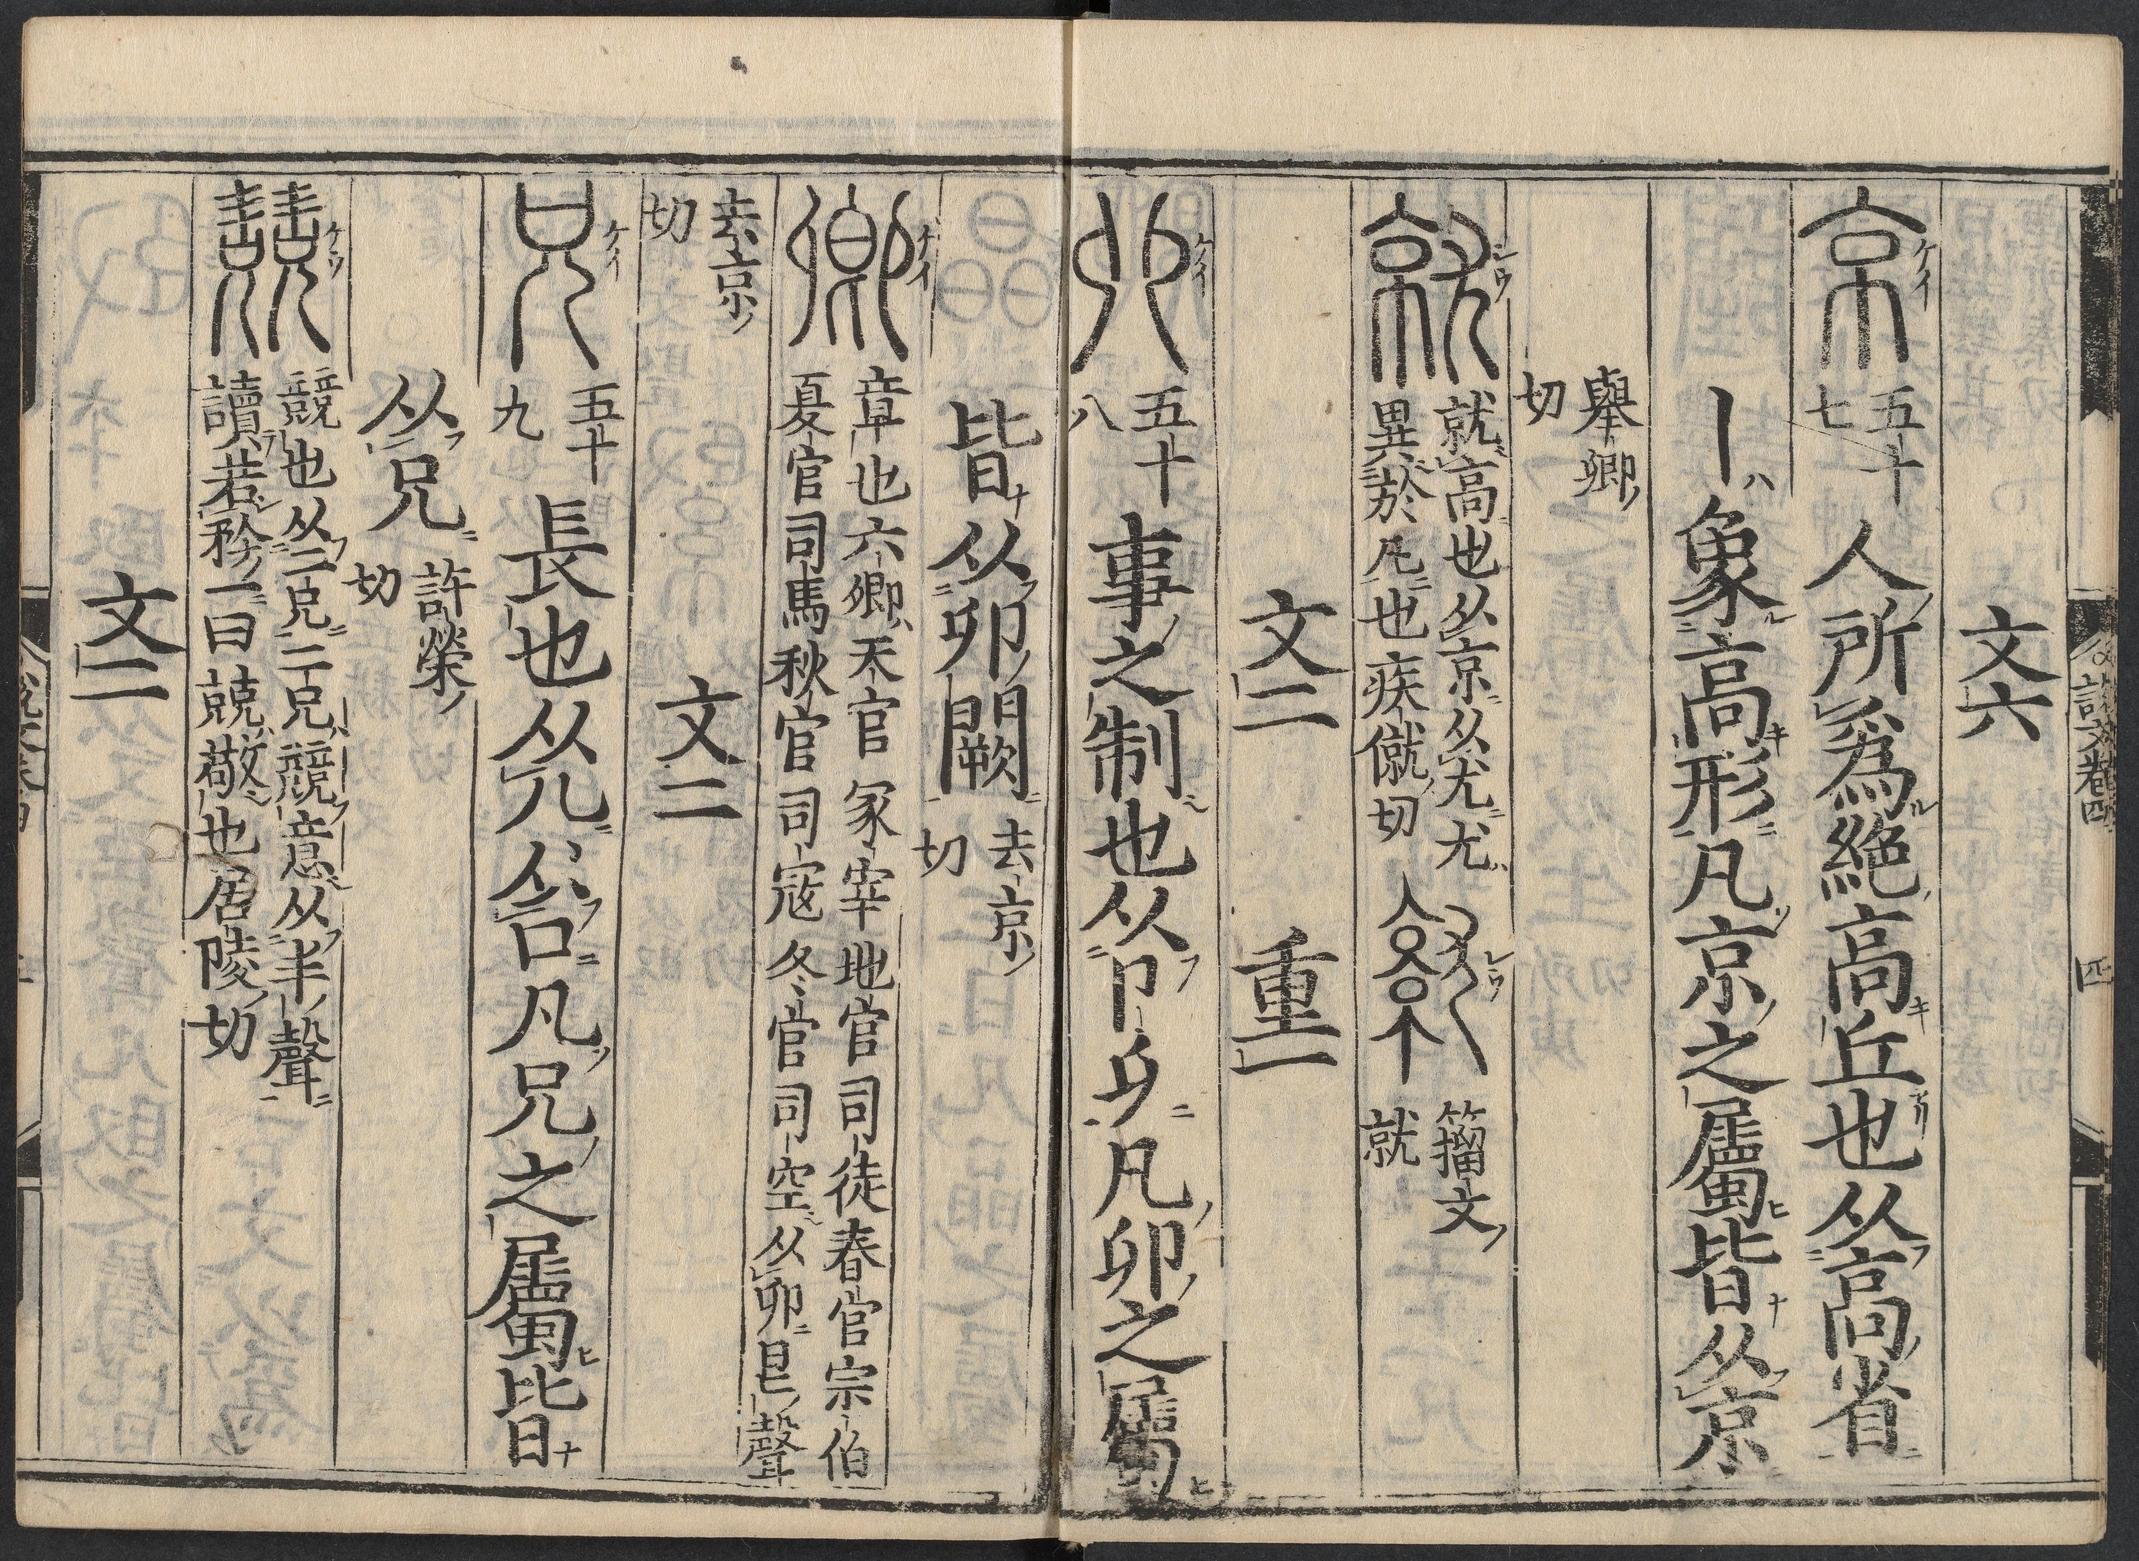 文六
京 五十七 人所爲絶高丘也从高省
丨象高形凡京之屬皆从京
舉卿切
就 就高也从京从尤尤異於凡也疾僦切 籒文就
文二 重一
𠨍 五十八 事之制也从卩𠨎凡卯之屬
皆从卯闕 去京切
卿 章也六卿天官冢宰地官司徒春官宗伯夏官司馬秋官司寇冬官司空从卯皀聲
去京切 文二
兄 五十九 長也从儿从口凡兄之屬皆
从兄 許榮切
競 競也从二兄二兄競意从丰聲讀若矜一曰兢敬也居陵切
文二
說文卷四
四